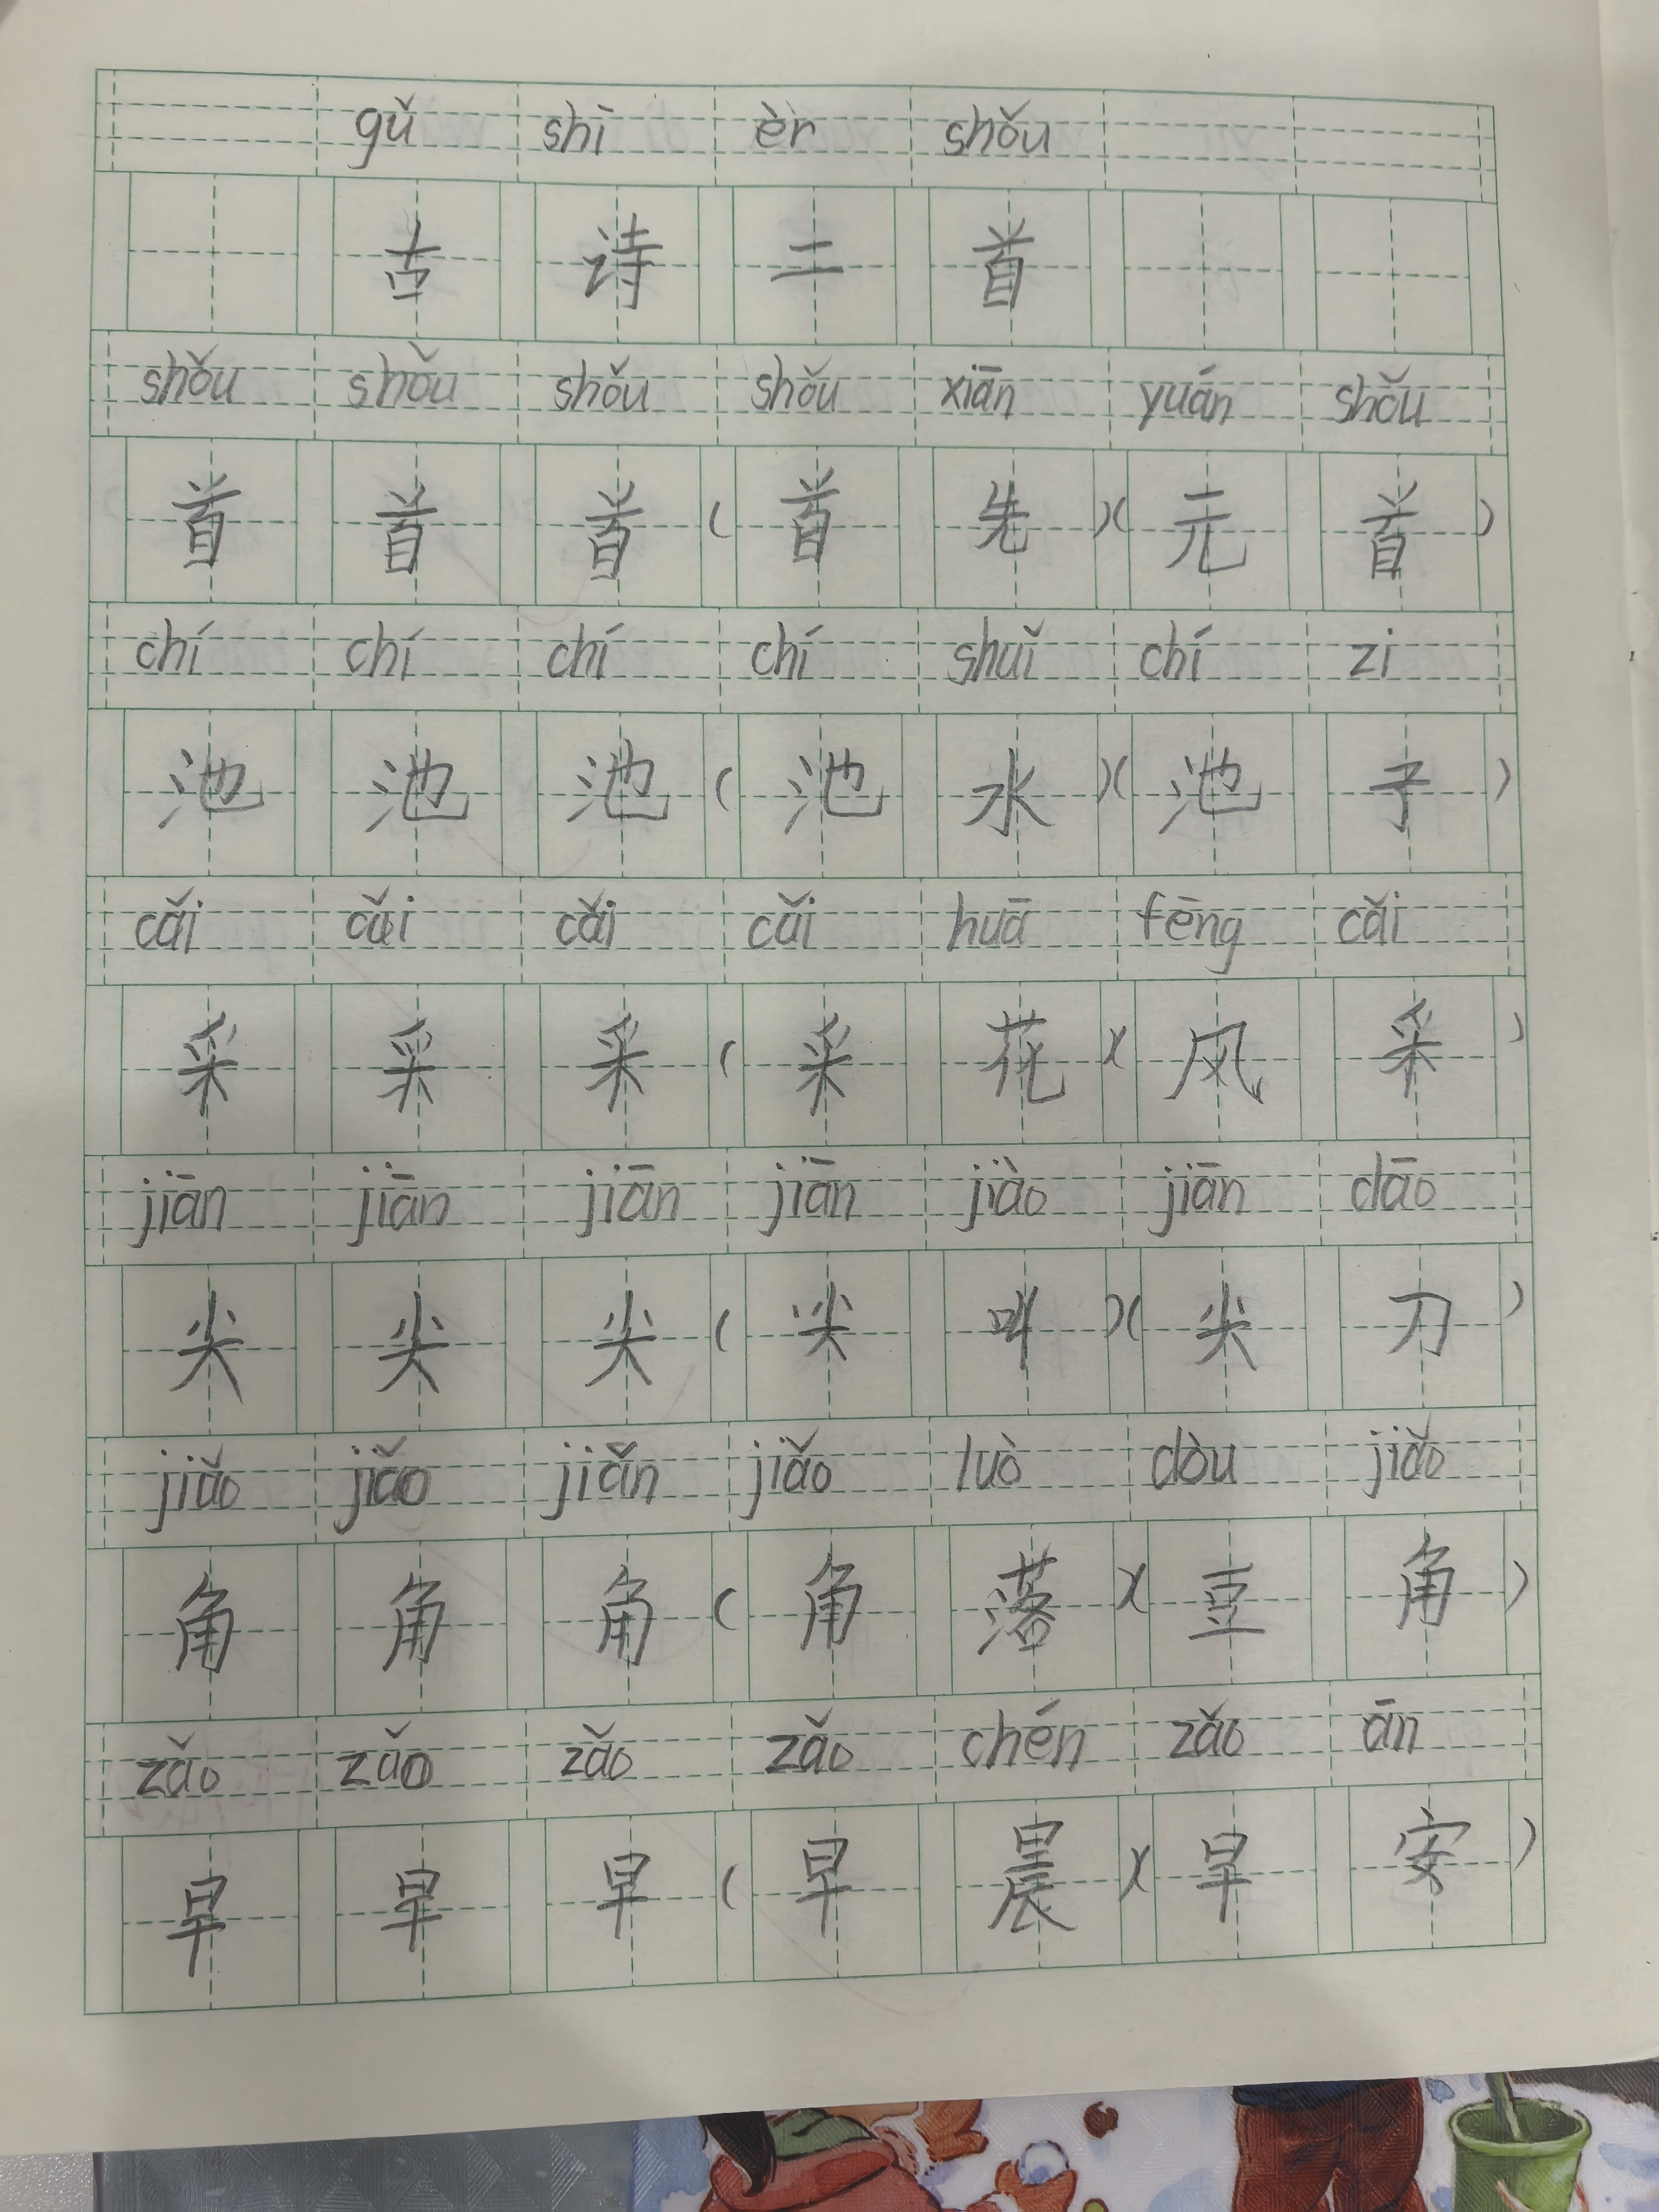 gǔ shī èr shǒu
古 诗 二 首
shǒu shǒu shǒu shǒu xiān yuán shǒu
首 首 首 ( 首 先 )( 元 首 )
chí chí chí chí shuǐ chí zi
池 池 池 ( 池 水 )( 池 子 )
cǎi cǎi cǎi cǎi huā fēng cǎi
采 采 采 ( 采 花 )( 风 采 )
jiān jiān jiān jiān jiào jiān dāo
尖 尖 尖 ( 尖 叫 )( 尖 刀 )
jiǎo jiǎo jiǎn jiǎo luò dòu jiǎo
角 角 角 ( 角 落 )( 豆 角 )
zǎo zǎo zǎo zǎo chén zǎo ān
早 早 早 ( 早 晨 )( 早 安 )